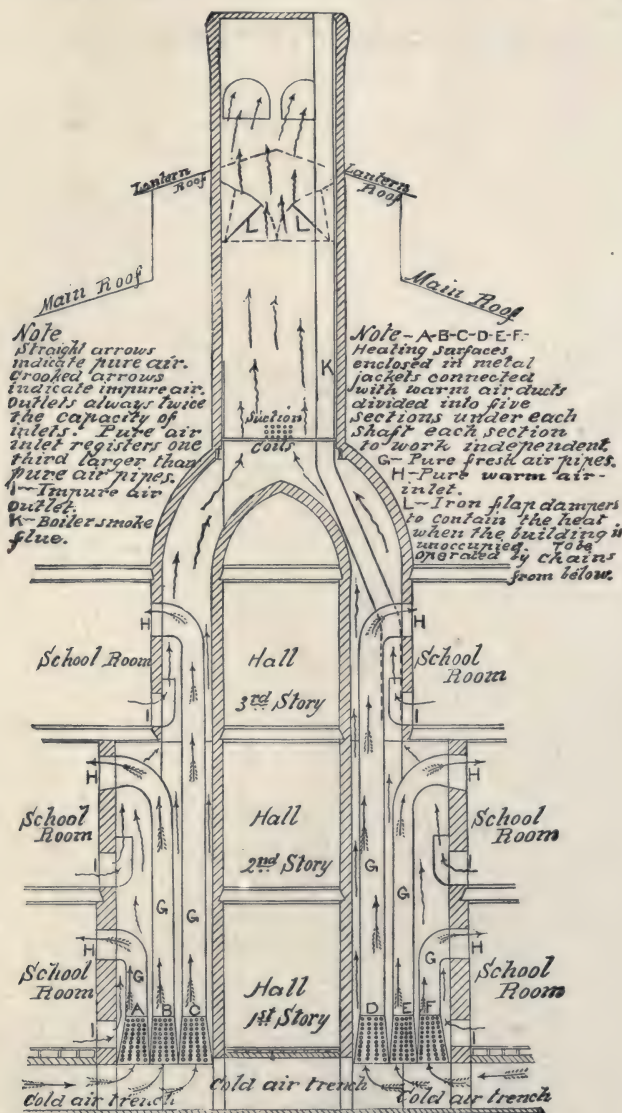 Lantern Roof
Lantern Roof
L
L
Main Roof
Main Roof
Note
Straight arrows
indicate pure air.
Crooked arrows
indicate impure air.
Outlets always twice
the capacity of
inlets. Pure air
inlet registers one
third larger than
pure air pipes.
I-Impure air
outlet.
K-Boiler smoke
flue.
K
Suction
Coils
Note-A-B-C-D-E-F-
Heating surfaces
enclosed in metal
jackets connected
with warm air ducts
divided into five
sections under each
shaft each section
to work independent.
G-Pure fresh air pipes.
H-Pure warm air-
inlet.
L-Iron flap dampers
to contain the heat
when the building is
unoccupied. To be
operated by chains
from below.
H
H
School Room
Hall
School
Room
3rd Story
I
I
H
H
School
Room
Hall
School
Room
2nd Story
I
I
G
G
G
G
H
H
School
Room
G
Hall
G
School
Room
1st Story
A
B
C
D
E
F
I
I
Cold air trench
Cold air trench
Cold air trench